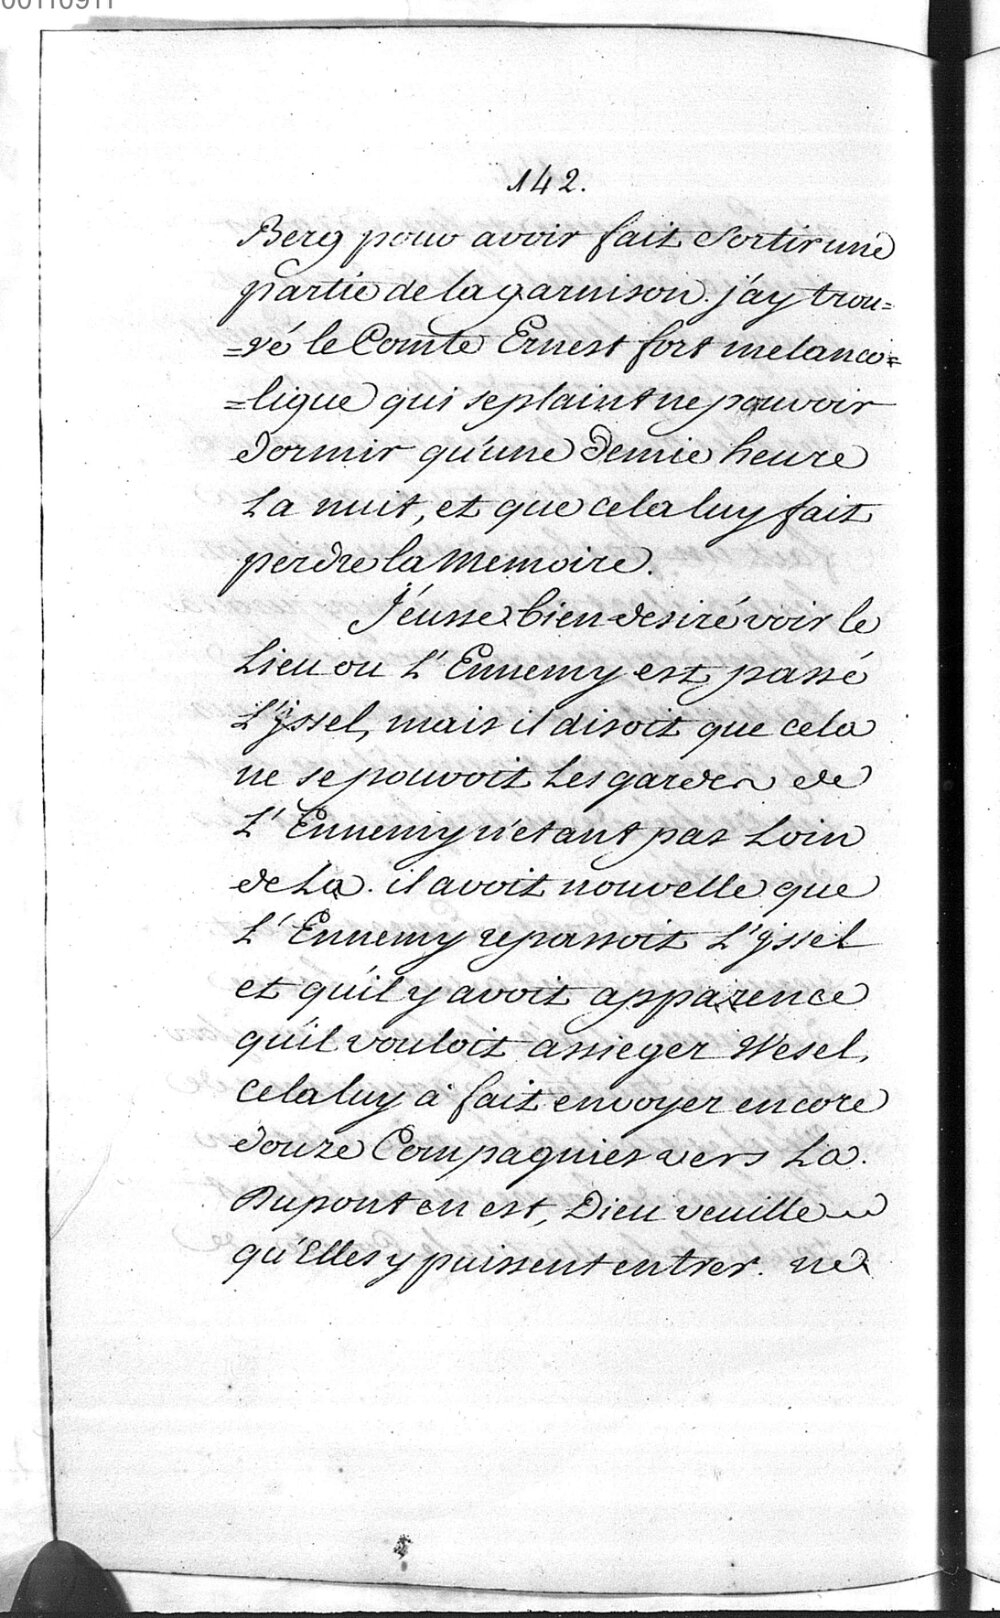 00110911
142.
Berg pour avoir fait Sortir une
partie de la garnison. j'ay trou=
=vé le Comte Ernest fort melanco=
=ligue qui se plaint ne pouvoir
dormir qu'une Demie heure
La nuit, et que cela luy fait
perdre la Memoire.
J'eusse bien desiré voir le
Lieu ou L'Ennemy est passé
L'yssel, mais il disoit que cela
ne se pouvoit Les gardes de
L'Ennemy n'etant pas Loin
de La. il avoit nouvelle que
L'Ennemy repassoit L'yssel
et qu'il y avoit apparence
qu'il vouloit assieger Wesel,
cela luy à fait envoyer encore
douze Compagnies vers La.
Dupont en est, Dieu veuille
qu'Elles y puissent entrer. ne